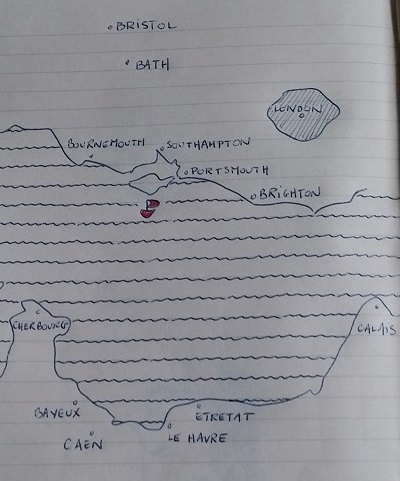 BRISTOL
BATH
LONDON
BOURNEMOUTH
SOUTHAMPTON
PORTSMOUTH
BRIGHTON
CHERBOURG
CALAIS
BAYEUX
ETRETAT
CAEN
LE HAVRE